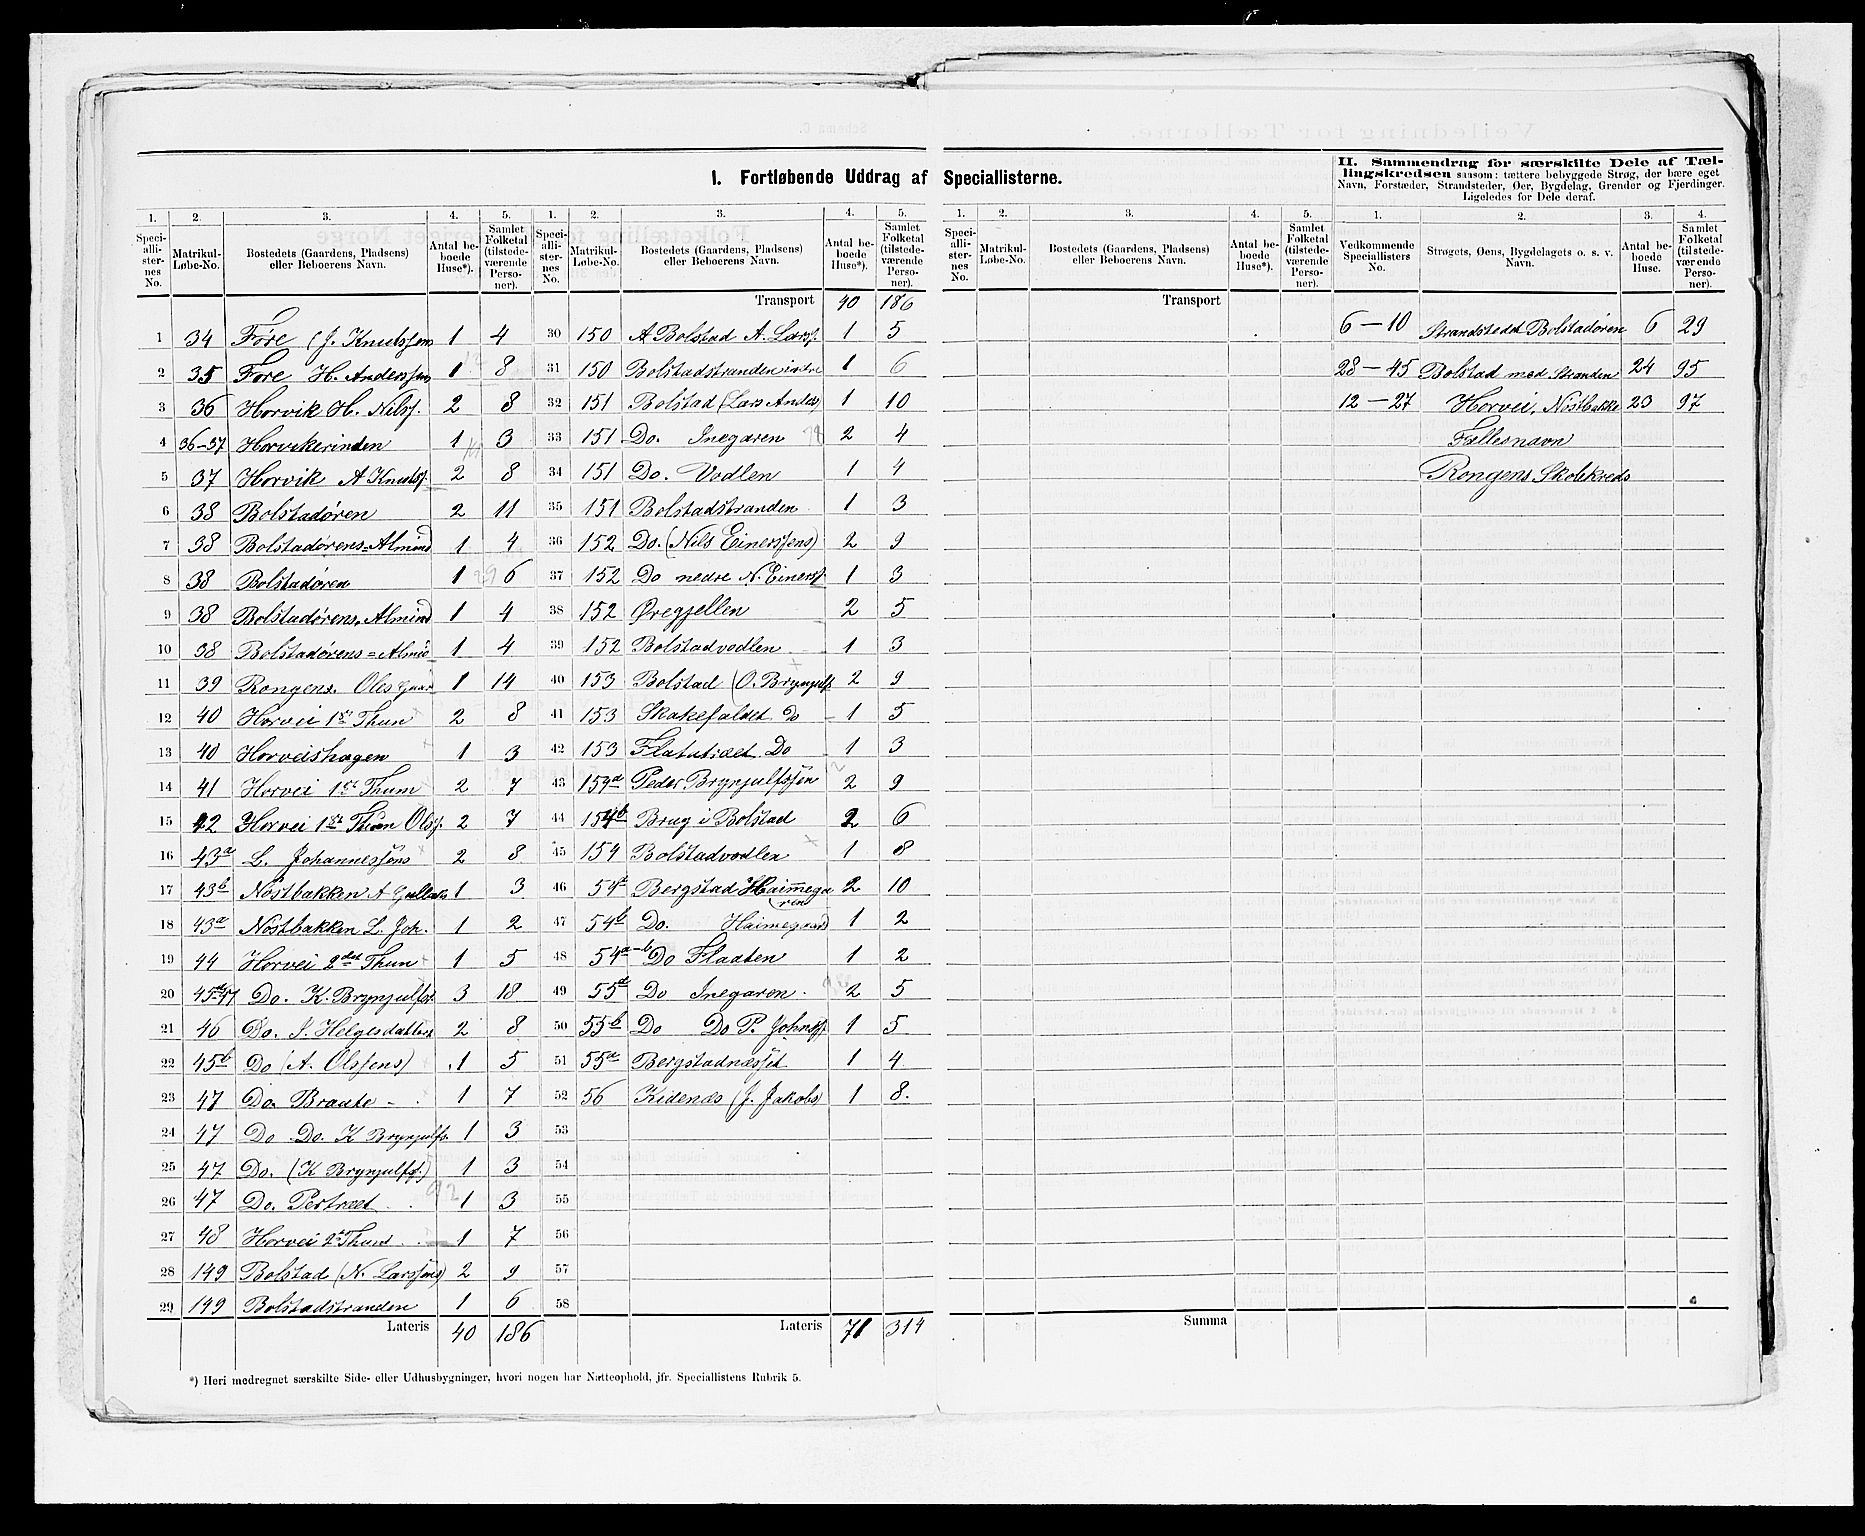 I. Fortløbende Uddrag af Speciallisterne.
II. Sammendrag for særskilte Dele af Tællingskredsen saasom: tættere bebyggede Strøg, der bære eget
Navn, Forstæder, Strandsteder, Øer, Bygdelag, Grender og Fjerdinger.
Ligeledes for Dele deraf.
1. 2. 3. 4. 5. 1. 2. 3. 4. 5. 1. 2. 3. 4. 5. 1. 2. 3. 4.
Speciallisternes No. Matrikul-Løbe-No. Bostedets (Gaardens, Pladsens) eller Beboerens Navn. Antal beboede Huse*). Samlet Folketal (tilstedeværende Personer).
Speciallisternes No. Matrikul-Løbe-No. Bostedets (Gaardens, Pladsens) eller Beboerens Navn. Antal beboede Huse*). Samlet Folketal (tilstedeværende Personer).
Speciallisternes No. Matrikul-Løbe-No. Bostedets (Gaardens, Pladsens) eller Beboerens Navn. Antal beboede Huse*). Samlet Folketal (tilstedeværende Personer).
Vedkommende Speciallisters No. Strøgets, Øens, Bygdelagets o. s. v. Navn. Antal beboede Huse. Samlet Folketal (tilstedeværende Personer).
1 34 Føre (J. Knudssøns 1 4
2 35 Føre H. Anderssøns 1 8
3 36 Horvik H. Nilss. 2 8
4 36-37 Horvikerinden 1 3
5 37 Horvik A Knudss. 2 8
6 38 Bolstadøren 2 11
7 38 Bolstadørens=Almind 1 4
8 38 Bolstadøren 1 6
9 38 Bolstadørens Almind 1 4
10 38 Bolstadørens=Almin 1 4
11 39 Rongens. Oles Gaar 1 14
12 40 Horvei 1st Thun 2 8
13 40 Horveishagen 1 3
14 41 Horvei 1st Thum 2 7
15 42 Horvei 1st Thun Olss. 2 7
16 43a L. Johannessøns 2 8
17 43b Nøstbakken A 1 3
18 43a Nøstbakken L. Joh. 1 2
19 44 Horvei 2det Thun 1 5
20 45a-47 Do. K. Brynjulfss. 3 18
21 46 Do. S. Helgesdatters 2 8
22 45b Do (A. Olssens) 1 5
23 47 Do. Braate 1 7
24 47 Do Do. K Brynjulfs. 1 3
25 47 Do. (K Brynjulfss.) 1 3
26 47 Do. Pertræet 1 3
27 48 Horvei 2t Thunt 1 7
28 149 Bolstad (N. Larssøns) 2 9
29 149 Bolstadstranden 1 6
Lateris 40 186
Transport 40 186
30 150 A Bolstad A. Larss. 1 5
31 150 Bolstadstranden indre 1 6
32 151 Bolstad (Lars Anders) 1 10
33 151 Do. Inegaren 2 4
34 151 Do. Vodlen 1 4
35 151 Bolstadstranden 1 3
36 152 Do. (Nils Einerssens) 2 9
37 152 Do nedre N. Einerss. 1 3
38 152 Øregjellen 2 5
39 152 Bolstadvodlen 1 3
40 153 Bolstad (O. Brynjulfs 2 9
41 153 Skakefaldet Do 1 5
42 153 Flatatræet Do 1 3
43 159a Peder Brynjulfssøn 2 9
44 154b Brug i Bolstad 2 6
45 154 Bolstadvodlen 1 8
46 54a Bergstad Haimegaren 2 10
47 54b Do. Haimegaard 1 2
48 54a-b Do Flaaten 1 2
49 55a Do Inegaren 2 5
50 55b Do Do P. Johnss. 1 5
51 55a Bergstadnæsset 1 4
52 56 Kidenæs (J. Jakobs) 1 8
53
54
55
56
57
58
Lateris 71 314
Transport
Summa
6-10 Strandstedet Bolstadøren 6 29
28-45 Bolstad med Stranden 24 95
12-27 Horvei, Nøstbakke 23 97
Fællesnavn
Rongens Skolekreds
*) Heri medregnet særskilte Side- eller Udhusbygninger, hvori nogen har Natteophold, jfr. Speciallistens Rubrik 5.